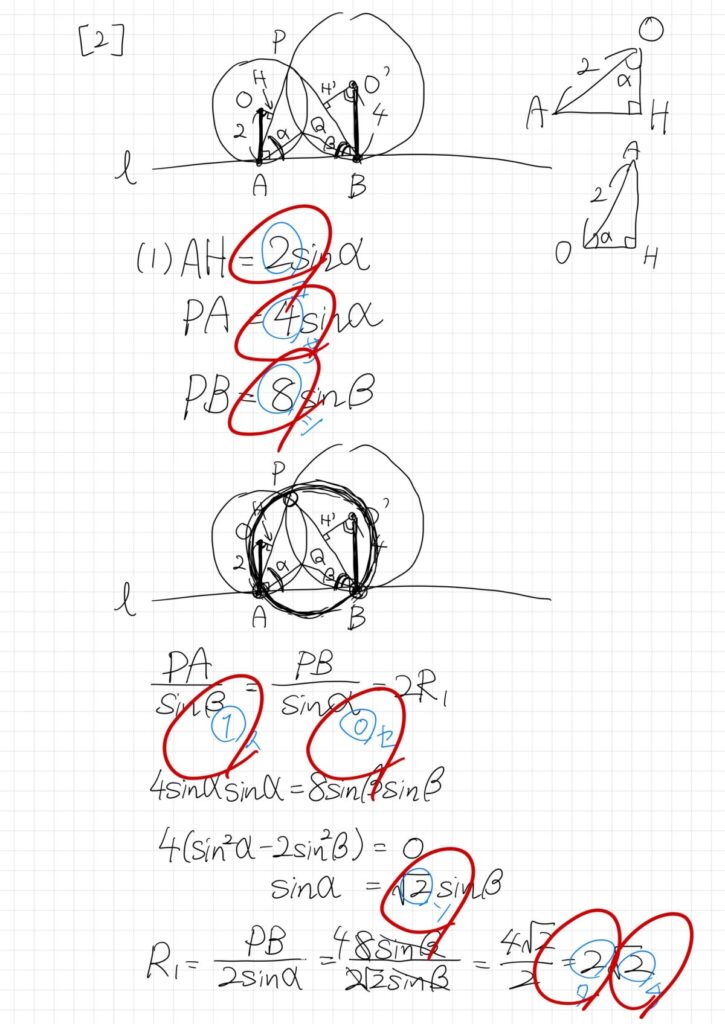 [2]
P
H
H'
O
O'
2
α
Q
β
4
l
A
B
O
2
α
A
H
A
2
O
α
H
(1) AH = 2sinα
PA = 4sinα
PB = 8sinβ
P
H
H'
O
O'
2
α
Q
β
4
l
A
B
PA/sinβ = PB/sinα = 2R₁
① ス
⓪ セ
4sinαsinα = 8sinβsinβ
4(sin²α − 2sin²β) = 0
sinα = √2 sinβ
R₁ = PB/2sinα = 4 8sinβ/2√2sinβ = 4√2/2 = 2√2